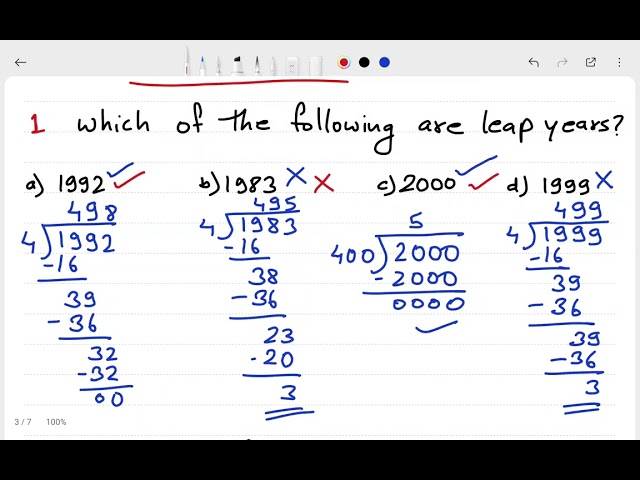 1 which of the following are leap years?
a) 1992 b) 1983 c) 2000 d) 1999
498 495 5 499
4 1992 4 1983 400 2000 4 1999
-16 -16 -2000 -16
39 38 0000 39
-36 -36 -36
32 23 39
-32 -20 -36
00 3 3
3 / 7 100%